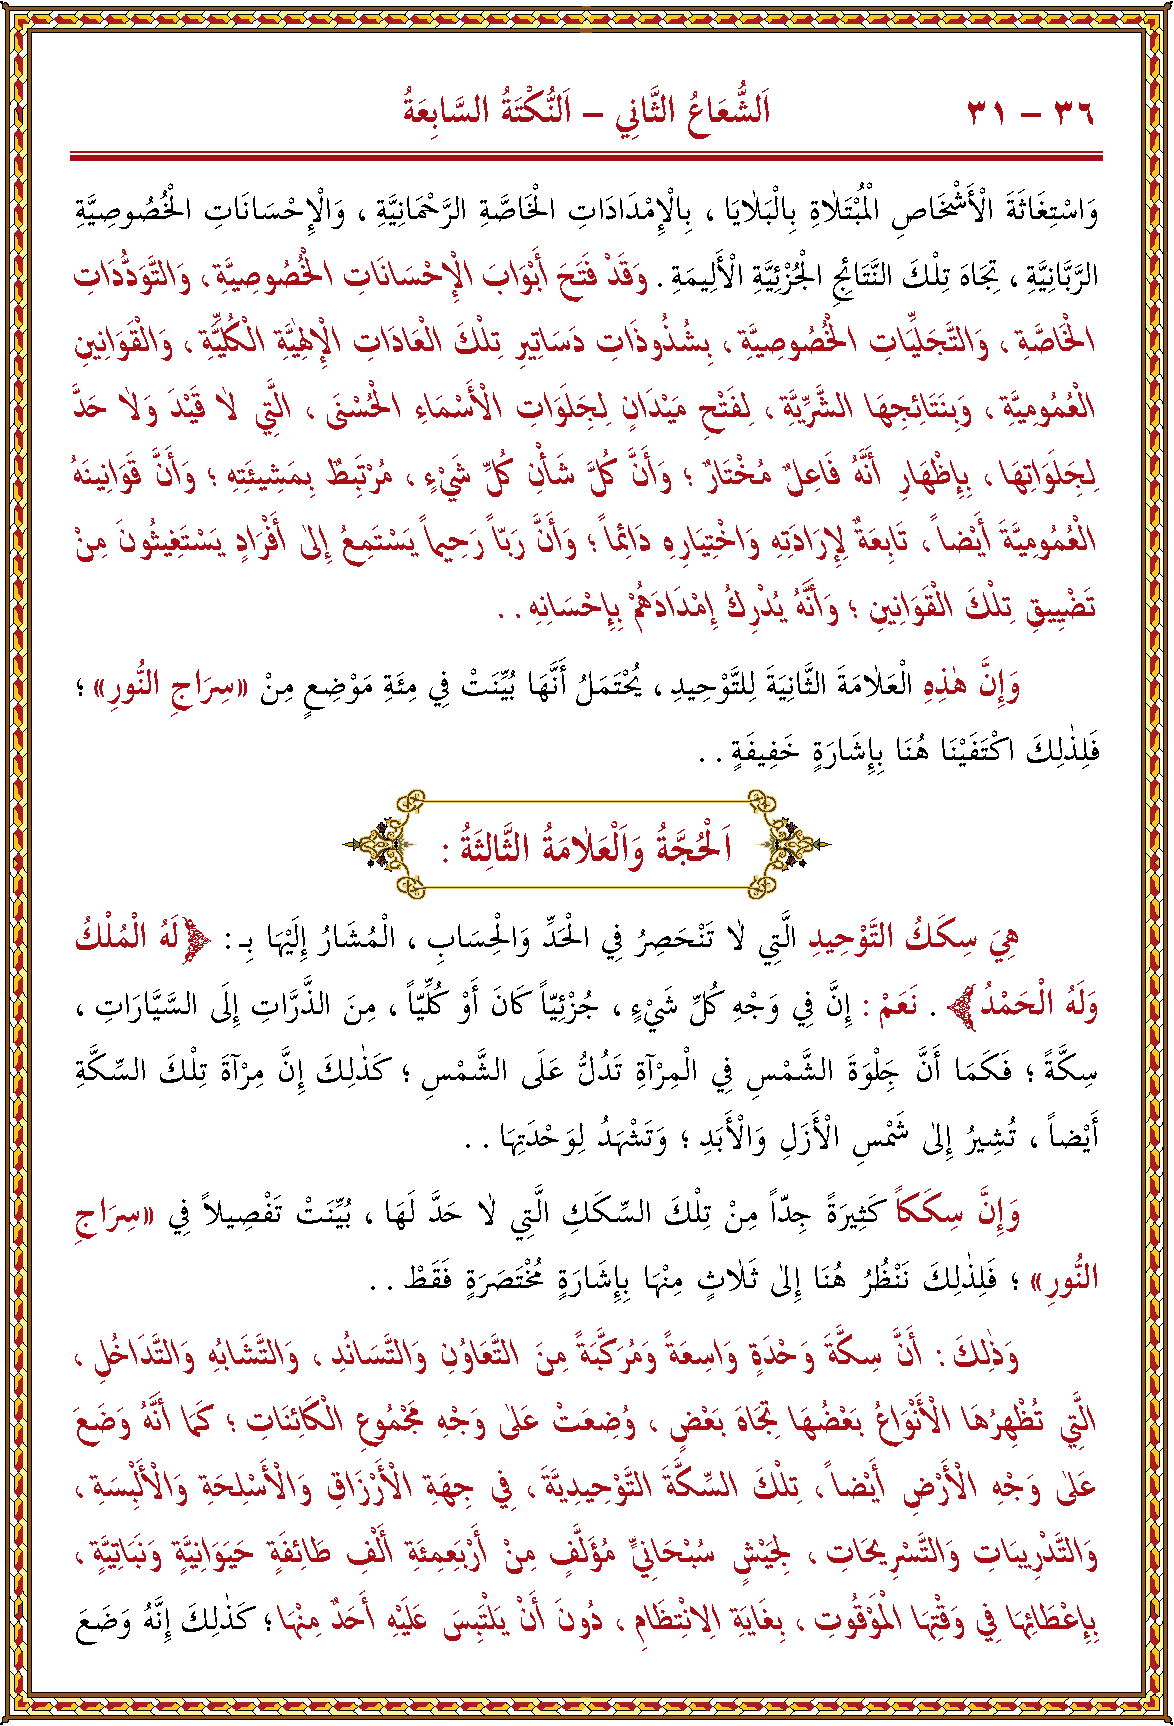 ٣٦ – ٣١ اَلشُّعَاعُ الثَّانِي – اَلنُّكْتَةُ السَّابِعَةُ
وَاسْتِغَاثَةَ الْأَشْخَاصِ الْمُبْتَلَاةِ بِالْبَلَايَا ، بِالْإِمْدَادَاتِ الْخَاصَّةِ الرَّحْمَانِيَّةِ ، وَالْإِحْسَانَاتِ الْخُصُوصِيَّةِ
الرَّبَّانِيَّةِ ، تِجَاهَ تِلْكَ النَّتَائِجِ الْجُزْئِيَّةِ الْأَلِيمَةِ . وَقَدْ فَتَحَ أَبْوَابَ الْإِحْسَانَاتِ الْخُصُوصِيَّةِ ، وَالتَّوَدُّدَاتِ
الْخَاصَّةِ ، وَالتَّجَلِّيَاتِ الْخُصُوصِيَّةِ ، بِشُذُوذَاتِ دَسَاتِيرِ تِلْكَ الْعَادَاتِ الْإِلٰهِيَّةِ الْكُلِّيَّةِ ، وَالْقَوَانِينِ
الْعُمُومِيَّةِ ، وَبِنَتَائِجِهَا الشَّرِّيَّةِ ، لِفَتْحِ مَيْدَانٍ لِجَلَوَاتِ الْأَسْمَاءِ الْحُسْنَى ، الَّتِي لَا قَيْدَ وَلَا حَدَّ
لِجَلَوَاتِهَا ، بِإِظْهَارِ أَنَّهُ فَاعِلٌ مُخْتَارٌ ؛ وَأَنَّ كُلَّ شَأْنِ كُلِّ شَيْءٍ ، مُرْتَبِطٌ بِمَشِيئَتِهِ ؛ وَأَنَّ قَوَانِينَهُ
الْعُمُومِيَّةَ أَيْضاً ، تَابِعَةٌ لِإِرَادَتِهِ وَاخْتِيَارِهِ دَائِماً ؛ وَأَنَّ رَبّاً رَحِيماً يَسْتَمِعُ إِلَى أَفْرَادٍ يَسْتَغِيثُونَ مِنْ
تَضْيِيقِ تِلْكَ الْقَوَانِينِ ؛ وَأَنَّهُ يُدْرِكُ إِمْدَادَهُمْ بِإِحْسَانِهِ . .
وَإِنَّ هٰذِهِ الْعَلَامَةَ الثَّانِيَةَ لِلتَّوْحِيدِ ، يُحْتَمَلُ أَنَّهَا بُيِّنَتْ فِي مِئَةِ مَوْضِعٍ مِنْ «سِرَاجِ النُّورِ» ؛
فَلِذٰلِكَ اكْتَفَيْنَا هُنَا بِإِشَارَةٍ خَفِيفَةٍ . .
اَلْحُجَّةُ وَاَلْعَلَامَةُ الثَّالِثَةُ :
هِيَ سِكَكُ التَّوْحِيدِ الَّتِي لَا تَنْحَصِرُ فِي الْحَدِّ وَالْحِسَابِ ، الْمُشَارُ إِلَيْهَا بِـ : ﴿لَهُ الْمُلْكُ
وَلَهُ الْحَمْدُ﴾ . نَعَمْ : إِنَّ فِي وَجْهِ كُلِّ شَيْءٍ ، جُزْئِيّاً كَانَ أَوْ كُلِّيّاً ، مِنَ الذَّرَّاتِ إِلَى السَّيَّارَاتِ ،
سِكَّةً ؛ فَكَمَا أَنَّ جَلْوَةَ الشَّمْسِ فِي الْمِرْآةِ تَدُلُّ عَلَى الشَّمْسِ ؛ كَذٰلِكَ إِنَّ مِرْآةَ تِلْكَ السِّكَّةِ
أَيْضاً ، تُشِيرُ إِلَى شَمْسِ الْأَزَلِ وَالْأَبَدِ ؛ وَتَشْهَدُ لِوَحْدَتِهَا . .
وَإِنَّ سِكَكاً كَثِيرَةً جِدّاً مِنْ تِلْكَ السِّكَكِ الَّتِي لَا حَدَّ لَهَا ، بُيِّنَتْ تَفْصِيلاً فِي «سِرَاجِ
النُّورِ» ؛ فَلِذٰلِكَ نَنْظُرُ هُنَا إِلَى ثَلَاثٍ مِنْهَا بِإِشَارَةٍ مُخْتَصَرَةٍ فَقَطْ . .
وَذٰلِكَ : أَنَّ سِكَّةَ وَحْدَةٍ وَاسِعَةً وَمُرَكَّبَةً مِنَ التَّعَاوُنِ وَالتَّسَانُدِ ، وَالتَّشَابُهِ وَالتَّدَاخُلِ ،
الَّتِي تُظْهِرُهَا الْأَنْوَاعُ بَعْضُهَا تِجَاهَ بَعْضٍ ، وُضِعَتْ عَلَى وَجْهِ مَجْمُوعِ الْكَائِنَاتِ ؛ كَمَا أَنَّهُ وَضَعَ
عَلَى وَجْهِ الْأَرْضِ أَيْضاً ، تِلْكَ السِّكَّةَ التَّوْحِيدِيَّةَ ، فِي جِهَةِ الْأَرْزَاقِ وَالْأَسْلِحَةِ وَالْأَلْبِسَةِ ،
وَالتَّدْرِيبَاتِ وَالتَّسْرِيحَاتِ ، لِجَيْشٍ سُبْحَانِيٍّ مُؤَلَّفٍ مِنْ أَرْبَعِمِئَةِ أَلْفِ طَائِفَةٍ حَيَوَانِيَّةٍ وَنَبَاتِيَّةٍ ،
بِإِعْطَائِهَا فِي وَقْتِهَا الْمَوْقُوتِ ، بِغَايَةِ الِانْتِظَامِ ، دُونَ أَنْ يَلْتَبِسَ عَلَيْهِ أَحَدٌ مِنْهَا ؛ كَذٰلِكَ إِنَّهُ وَضَعَ